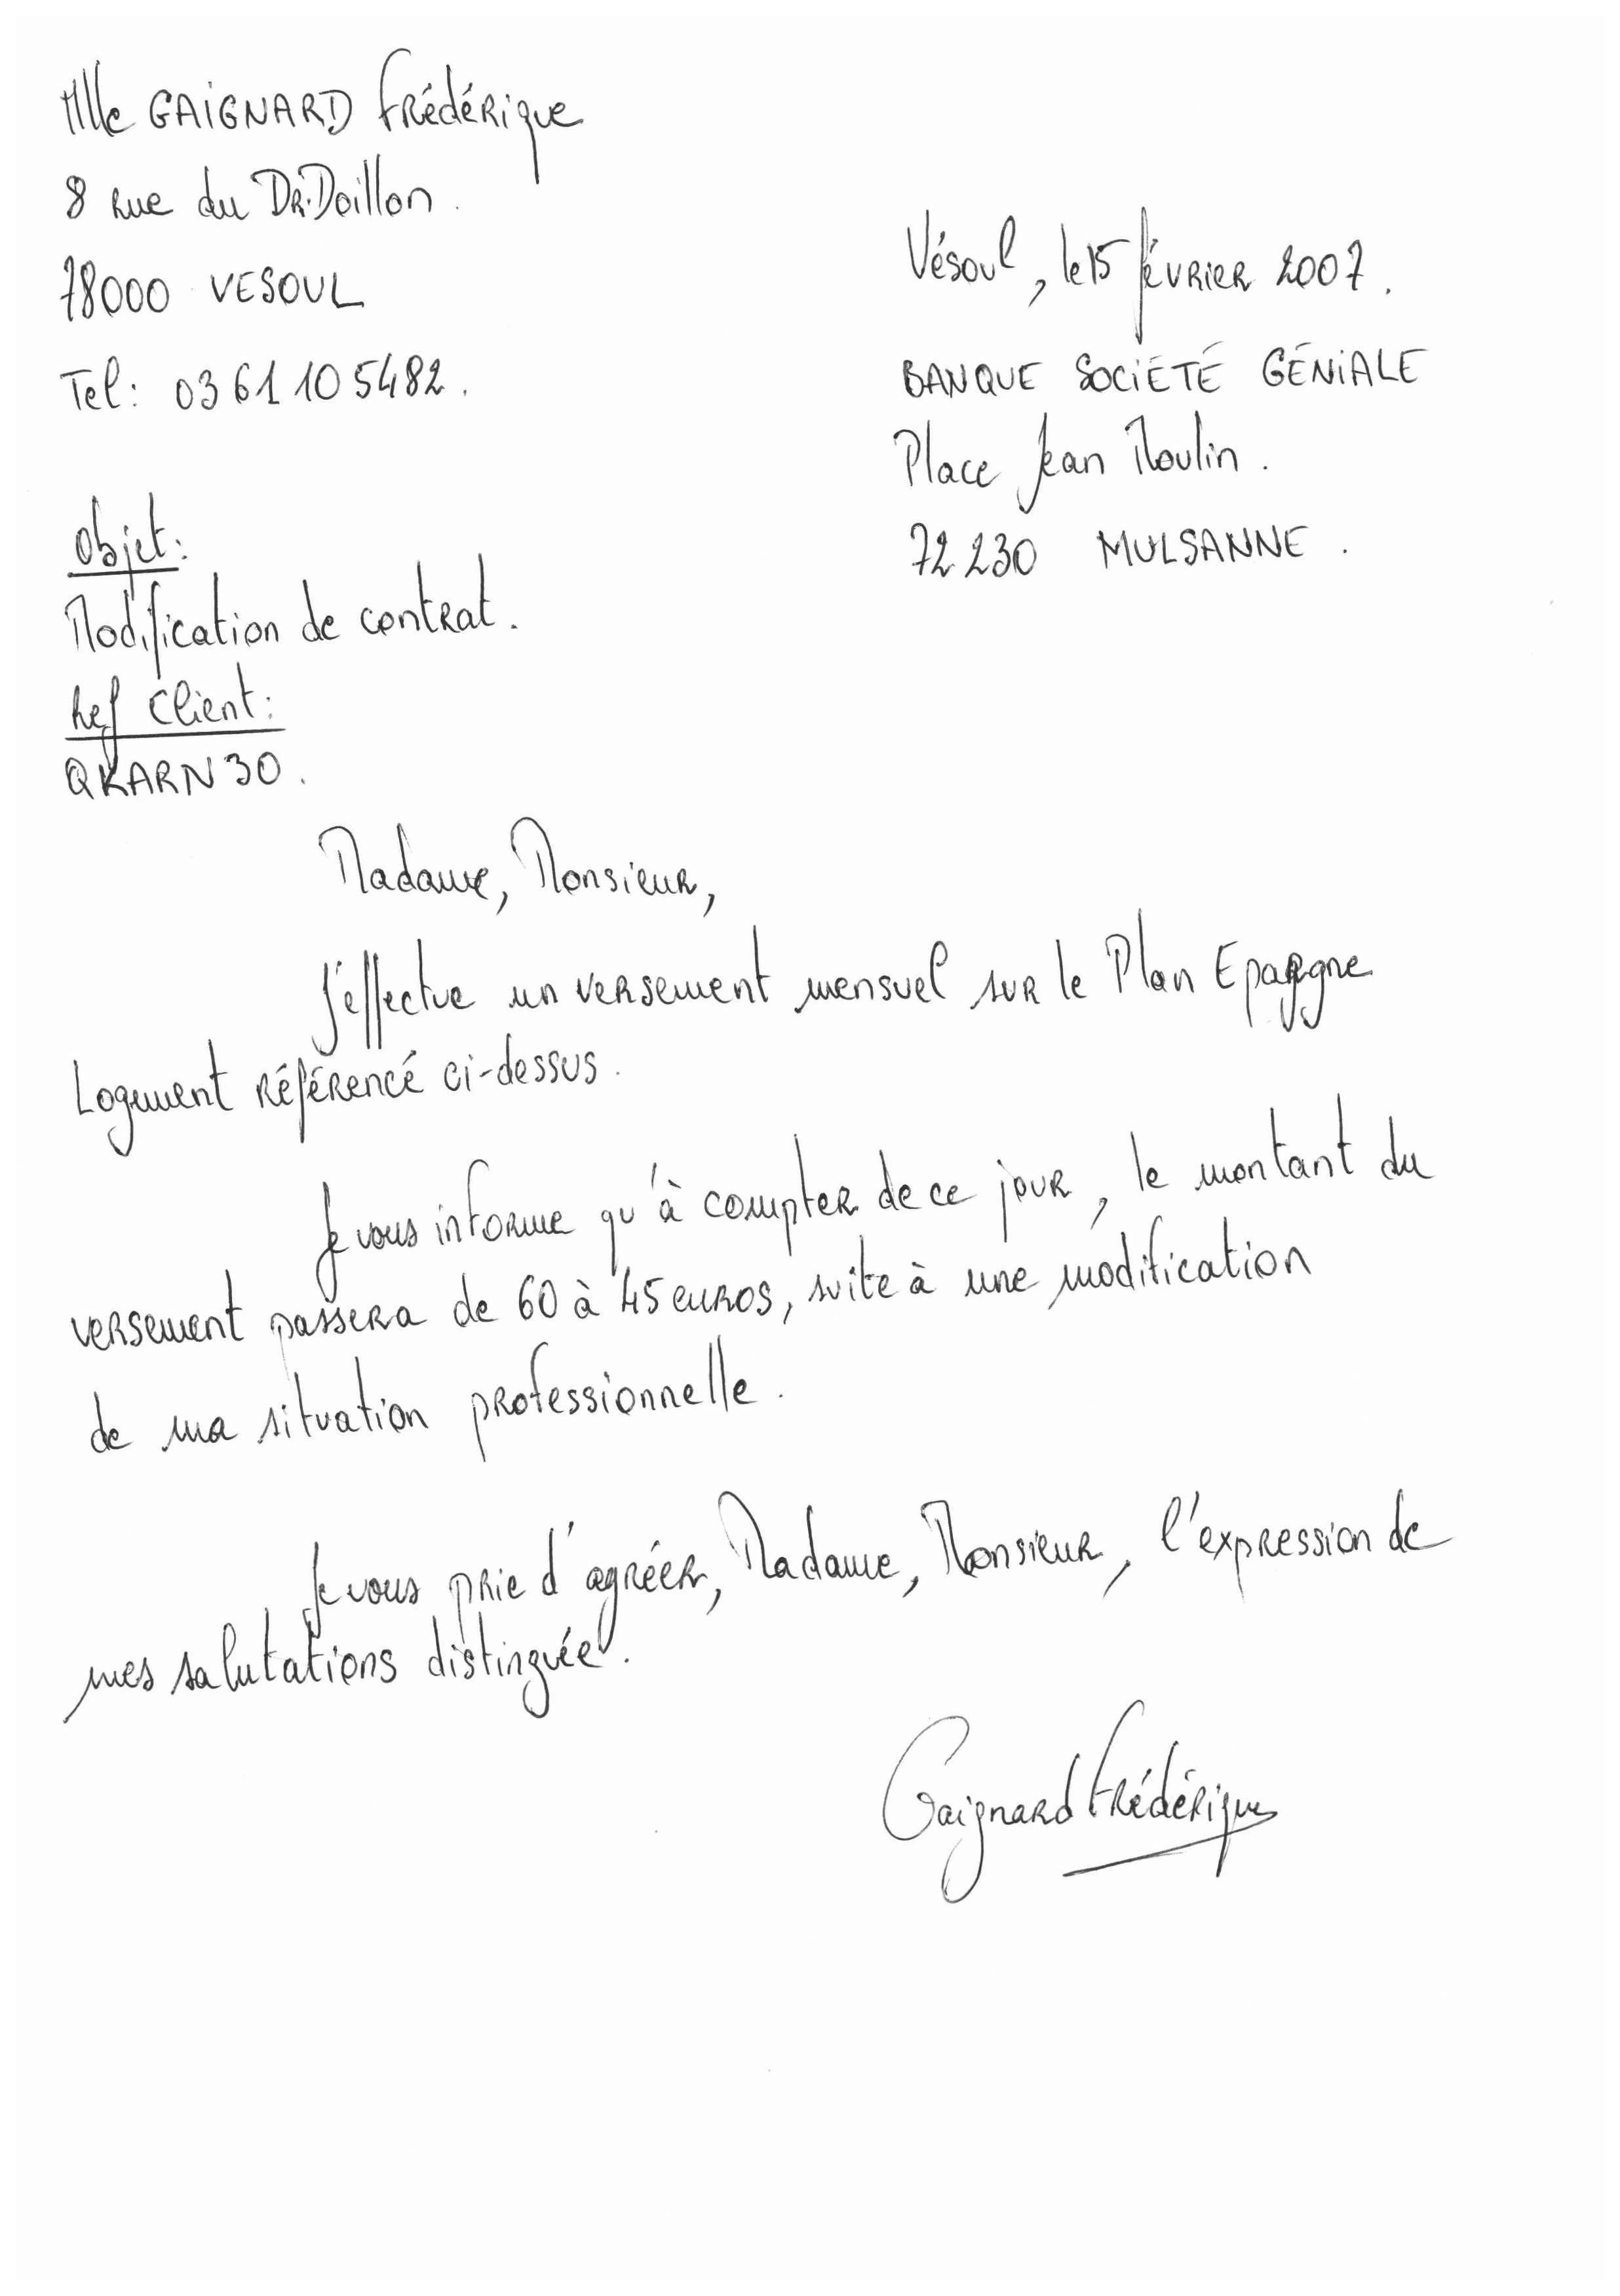 Mlle GAIGNARD Frédérique
8 rue du DR.Doillon.
78000 VESOUL
Tel: 03 61 10 54 82.
Vésoul, le 15 février 2007.
BANQUE SOCIÉTÉ GÉNIALE
Place Jean Moulin.
72 230 MULSANNE.
Objet:
Modification de contrat.
Ref Client:
QKARN30.
Madame, Monsieur,
J'éffectue un versement mensuel sur le Plan Epargne
Logement référencé ci-dessus.
Je vous informe qu'à compter de ce jour, le montant du
versement passera de 60 à 45 euros, suite à une modification
de ma situation professionnelle.
Je vous prie d'agréer, Madame, Monsieur, l'expression de
mes salutations distinguée.
Gaignard Frédérique